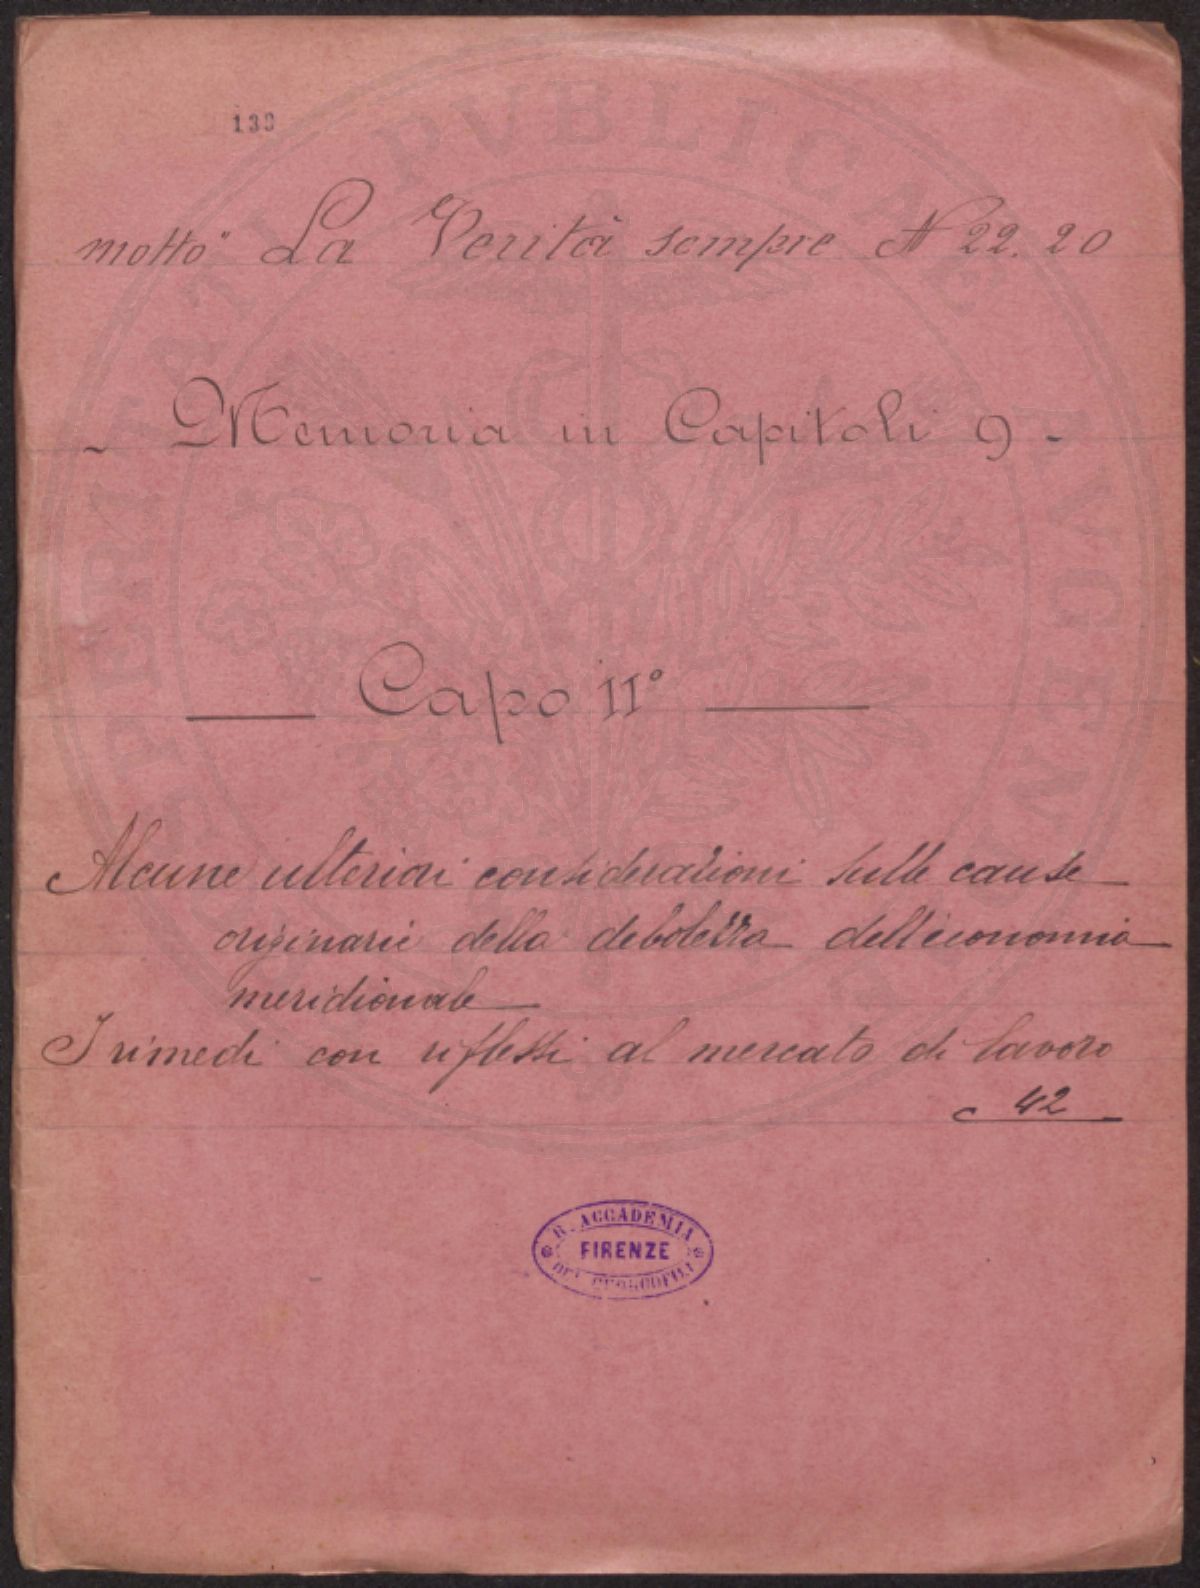 133
motto" La Verità sempre N 22.20
- Memoria in Capitoli 9 -
Capo II°
Alcune ulteriori considerazioni sulle cause
originarie della debolezza dell'economia
meridionale
I rimedi con riflessi al mercato di lavoro
c 42
R. ACCADEMIA
FIRENZE
DEI GEORGOFILI
PROSPERITATI PVBLICAE AVGENDAE